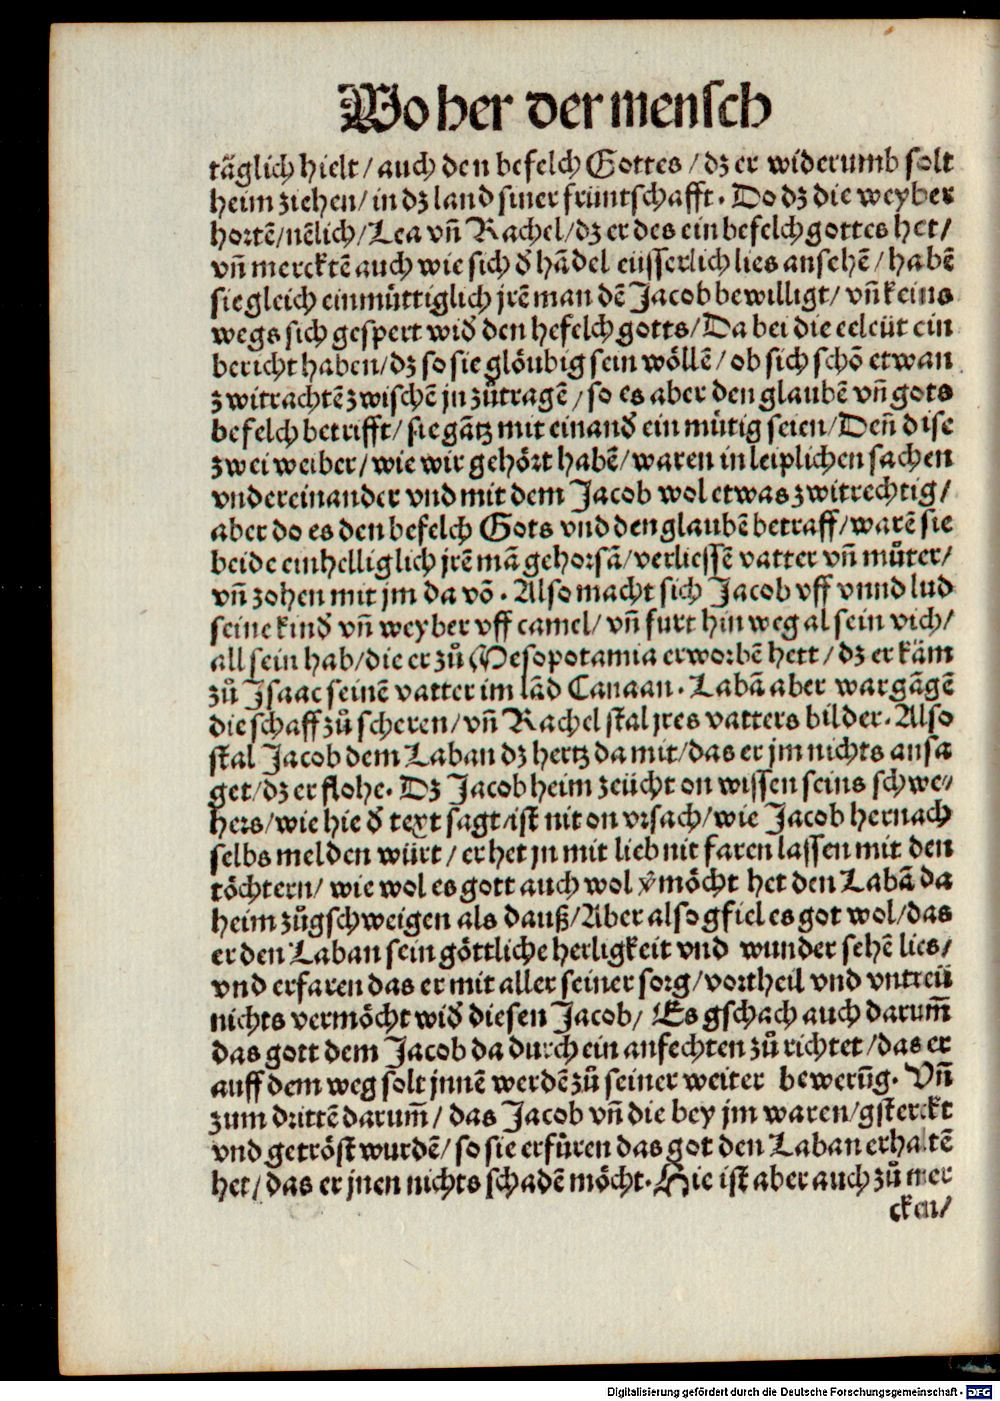 Wo her der mensch
täglich hielt / auch den befelch Gottes / dz er widerumb solt
heim ziehen / in dz land siner früntschafft. Do dz die weyber
hortē / nēlich / Lea vn̄ Rachel / dz er des ein befelch gottes het /
vn̄ mercktē auch wie sich d̕ hādel eüsserlich lies ansehē / habē
sie gleich einmüttiglich jrē man dē Jacob bewilligt / vn̄ keins
wegs sich gespert wid̕ den hefelch gotts / Da bei die eeleüt ein
bericht haben / dz so sie glöubig sein wöllē / ob sich schō etwan
zwitrachtē zwischē jn zůtragē / so es aber den glaubē vn̄ gots
befelch betrifft / sie gātz mit einand̕ ein mütig seien / Den̄ dise
zwei weiber / wie wir gehört habē / waren in leiplichen sachen
vndereinander vnd mit dem Jacob wol etwas zwitrechtig /
aber do es den befelch Gots vnd den glaubē betraff / warē sie
beide einhelliglich jrē mā gehorsā / verliessē vatter vn̄ můter /
vn̄ zohen mit jm da vō. Also macht sich Jacob vff vnnd lud
seine kind̕ vn̄ weyber vff camel / vn̄ furt hin weg al sein vich /
all sein hab / die er zů Mesopotamia erworbē hett / dz er käm
zů Isaac seinē vatter im lād Canaan. Labā aber war gāgē
die schaff zů scheren / vn̄ Rachel stal jres vatters bilder. Also
stal Jacob dem Laban dz hertz da mit / das er jm nichts ansa
get / dz er flohe. Dz Jacob heim zeücht on wissen seins schwe/
hers / wie hie d̕ text sagt / ist nit on vrsach / wie Jacob hernach
selbs melden würt / er het jn mit lieb nit faren lassen mit den
töchtern / wie wol es gott auch wol v̕möcht het den Labā da
heim zůgschweigen als dauß / Aber also gfiel es got wol / das
er den Laban sein göttliche herligkeit vnd wunder sehē lies /
vnd erfaren das er mit aller seiner sorg / vortheil vnd vntreü
nichts vermöcht wid̕ diesen Jacob / Es gschach auch darum̄
das gott dem Jacob da durch ein anfechten zů richtet / das er
auff dem weg solt jnnē werdē zů seiner weiter bewerūg. Vn̄
zum drittē darum̄ / das Jacob vn̄ die bey jm waren / gsterckt
vnd getröst wurdē / so sie erfůren das got den Laban erhaltē
het / das er jnen nichts schadē möcht. Hie ist aber auch zů mer
cken /
Digitalisierung gefördert durch die Deutsche Forschungsgemeinschaft - DFG